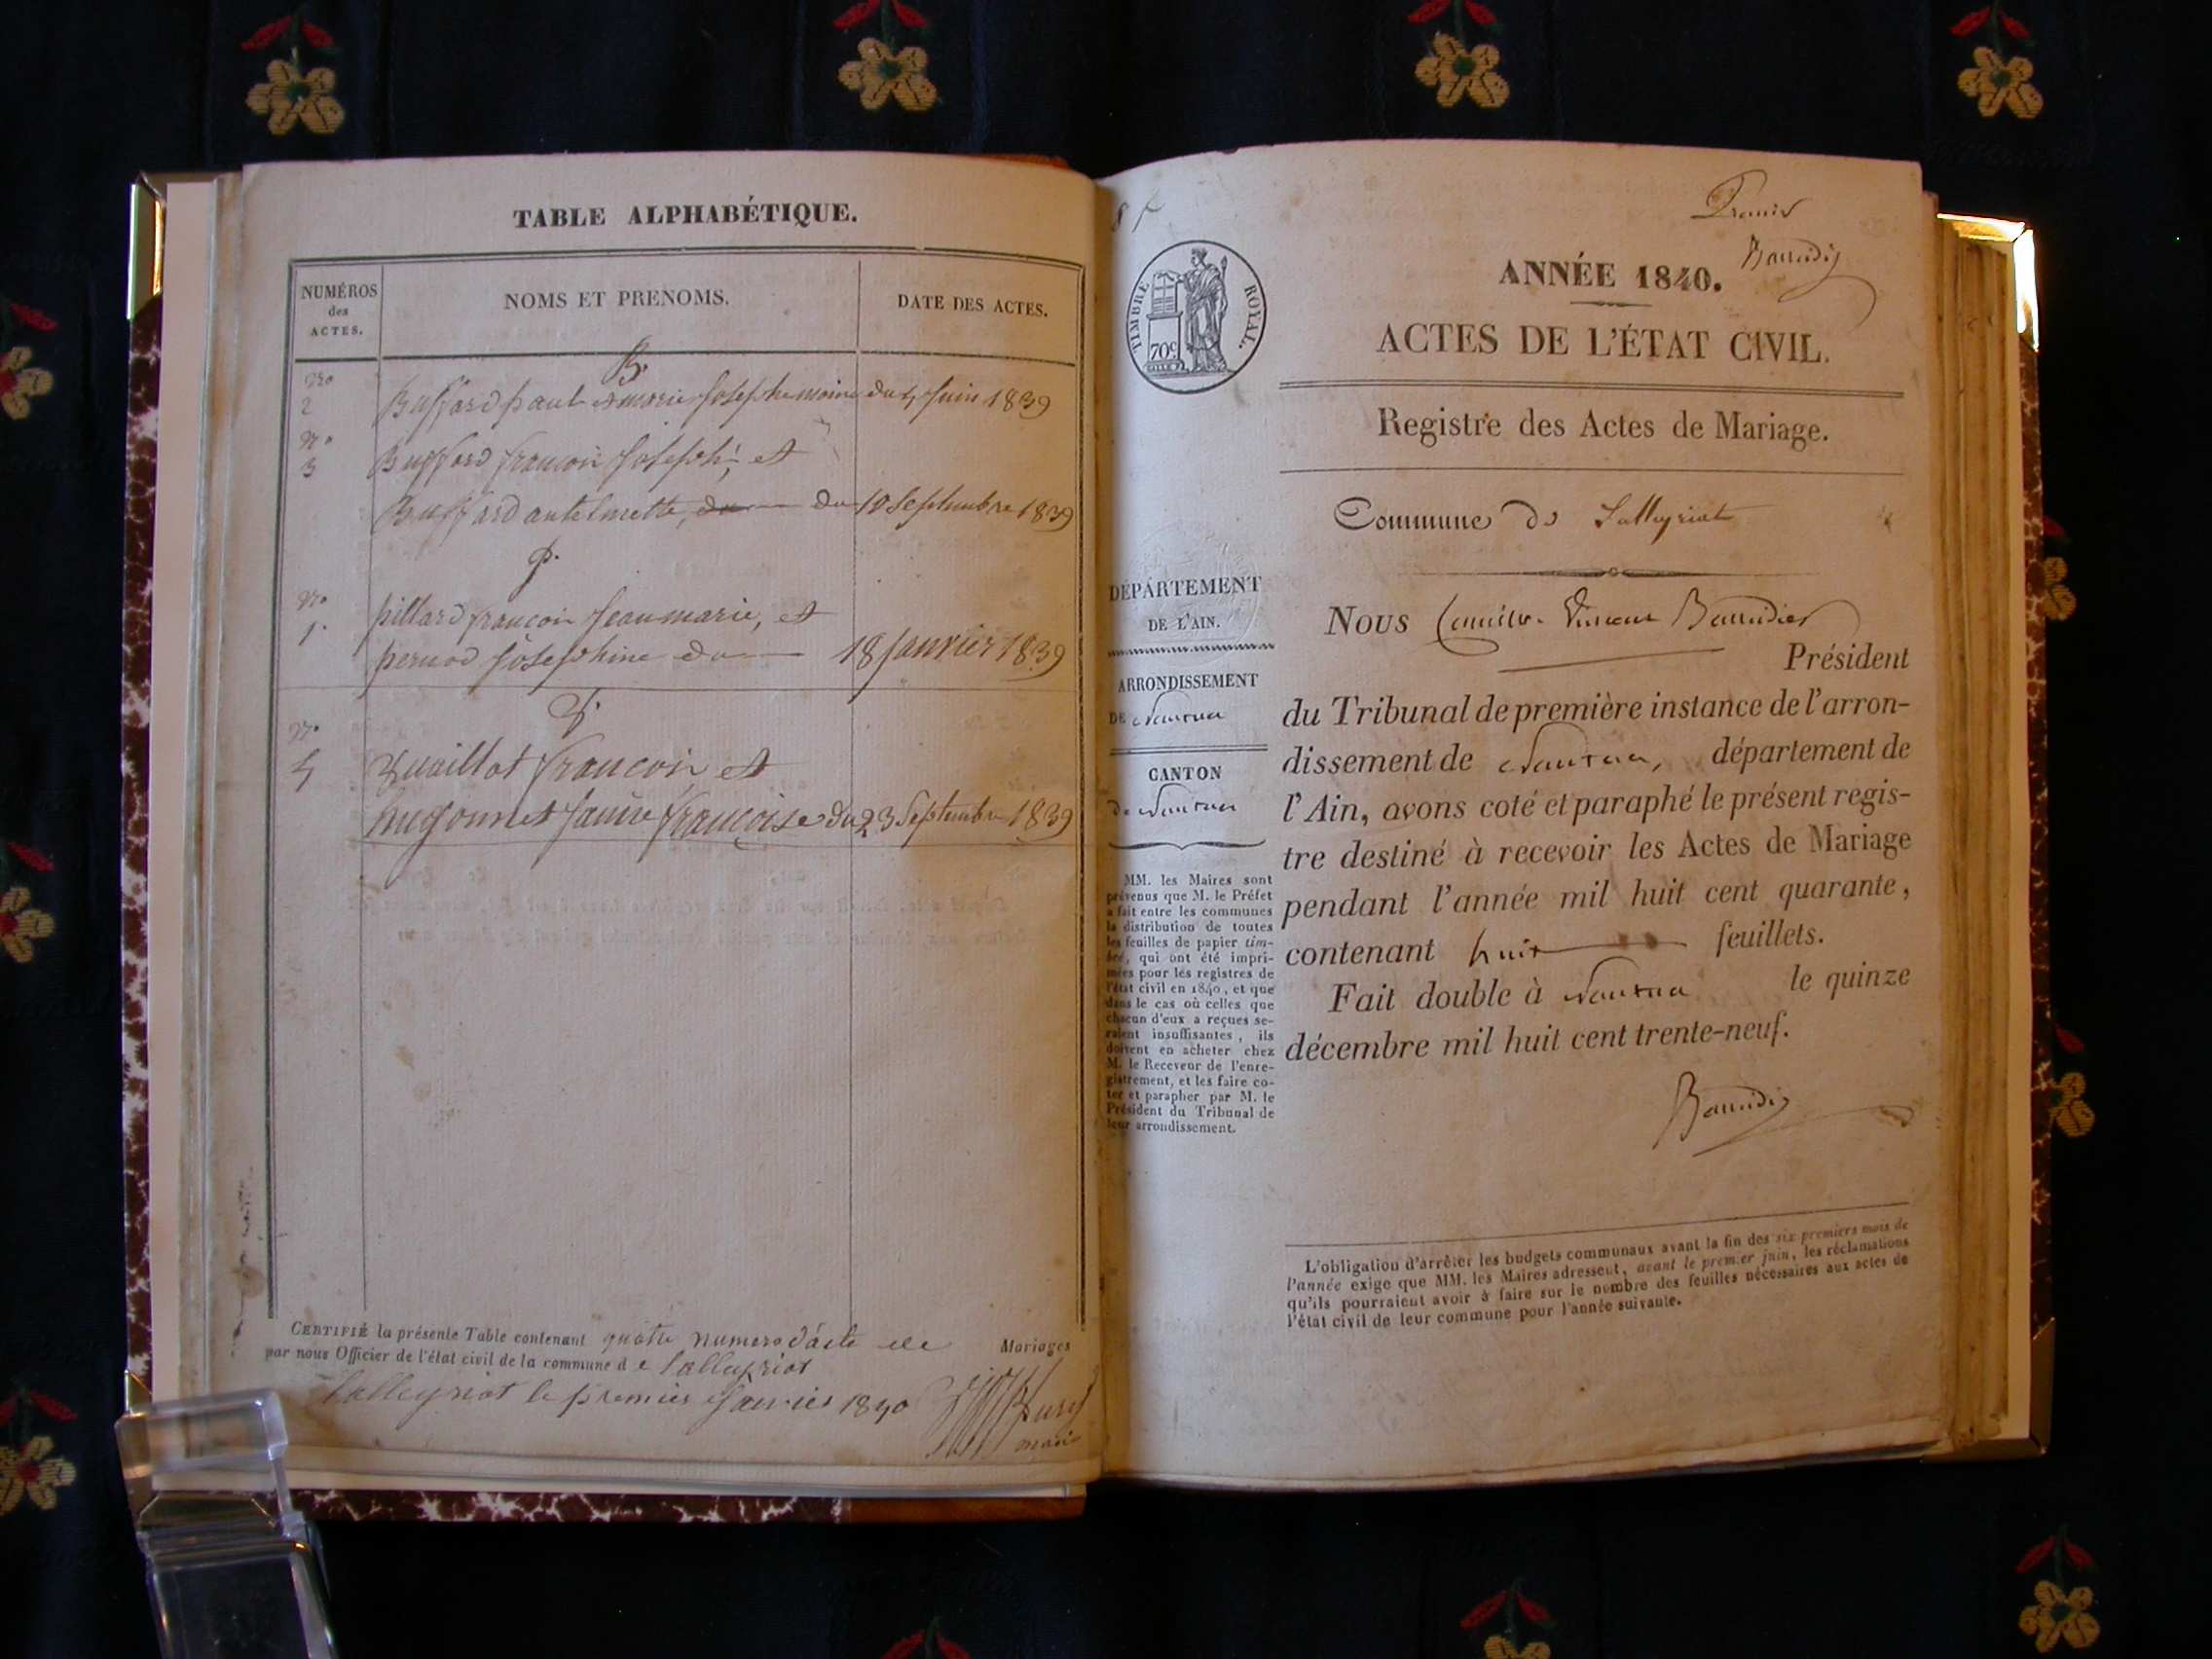 TABLE ALPHABÉTIQUE.
NUMÉROS
des
ACTES.
NOMS ET PRENOMS.
DATE DES ACTES.
B.
No
2
Buffard paul et marie Josephe moine du 4 Juin 1839
No
3
Buffard francois Joseph, et
Buffard antelmette, du 10 Septembre 1839
p.
No
1.
pillard francois Jean marie, et
pernod Josephine du 18 Janvier 1839
No
4
Zuaillat francois et
hugonnet francoise du 23 Septembre 1839
CERTIFIÉ la présente Table contenant quatre numero d'acte de Mariages
par nous Officier de l'état civil de la commune de Lalleyriat
Lalleyriat le premier Janvier 1840
maire
ANNÉE 1840.
ACTES DE L'ÉTAT CIVIL.
Registre des Actes de Mariage.
Commune de Lalleyriat
TIMBRE ROYAL.
70c
DÉPARTEMENT
DE L'AIN.
ARRONDISSEMENT
DE Nantua
CANTON
de Nantua
MM. les Maires sont
prévenus que M. le Préfet
a fait entre les communes
la distribution de toutes
les feuilles de papier tim-
bré, qui ont été impri-
mées pour les registres de
l'état civil en 1840, et que
dans le cas où celles que
chacun d'eux a reçues se-
raient insuffisantes, ils
doivent en acheter chez
M. le Receveur de l'enre-
gistrement, et les faire co-
ter et parapher par M. le
Président du Tribunal de
leur arrondissement.
Nous Camille Vincent Baudier
Président
du Tribunal de première instance de l'arron-
dissement de Nantua, département de
l'Ain, avons coté et paraphé le présent regis-
tre destiné à recevoir les Actes de Mariage
pendant l'année mil huit cent quarante,
contenant huit feuillets.
Fait double à Nantua le quinze
décembre mil huit cent trente-neuf.
L'obligation d'arrêter les budgets communaux avant la fin des six premiers mois de
l'année exige que MM. les Maires adressent, avant le premier juin, les réclamations
qu'ils pourraient avoir à faire sur le nombre des feuilles nécessaires aux actes de
l'état civil de leur commune pour l'année suivante.